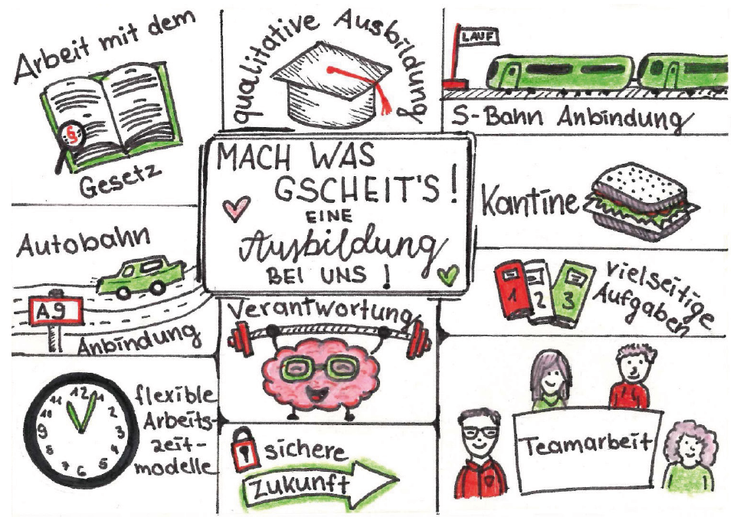 Arbeit mit dem
§
Gesetz
qualitative Ausbildung
LAUF
S-Bahn Anbindung
MACH WAS
GSCHEIT'S!
EINE
Ausbildung
BEI UNS!
Kantine
Autobahn
A9
Anbindung
1 2 3
vielseitige
Aufgaben
Verantwortung
12 1 2 3 4 5 6 7 8 9 10 11
flexible
Arbeits-
zeit-
modelle
sichere
Zukunft
Teamarbeit